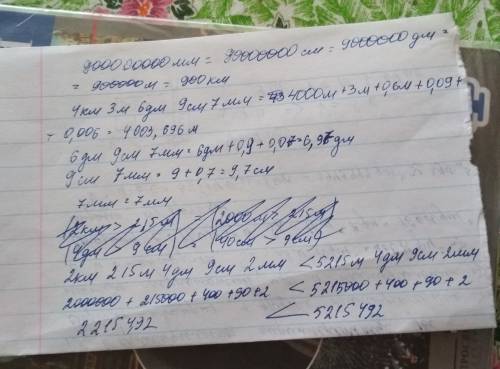 900000000мм = 90000000см = 9000000дм =
= 900000м = 900км
4км 3м 6дм 9см 7мм = 4000м+3м+0,6м+0,09+
+ 0,006 = 4003,696м
6дм 9см 7мм = 6дм+0,9+0,07=6,97дм
9см 7мм = 9+0,7=9,7см
7мм = 7мм
(2км > 215м) = (2000м > 215м)
(4дм > 9см) = (40см > 9см)
2км 215м 4дм 9см 2мм < 5215м 4дм 9см 2мм
2000000 + 215000 + 400 + 90 + 2 < 5215000 + 400 + 90 + 2
2215492 < 5215492